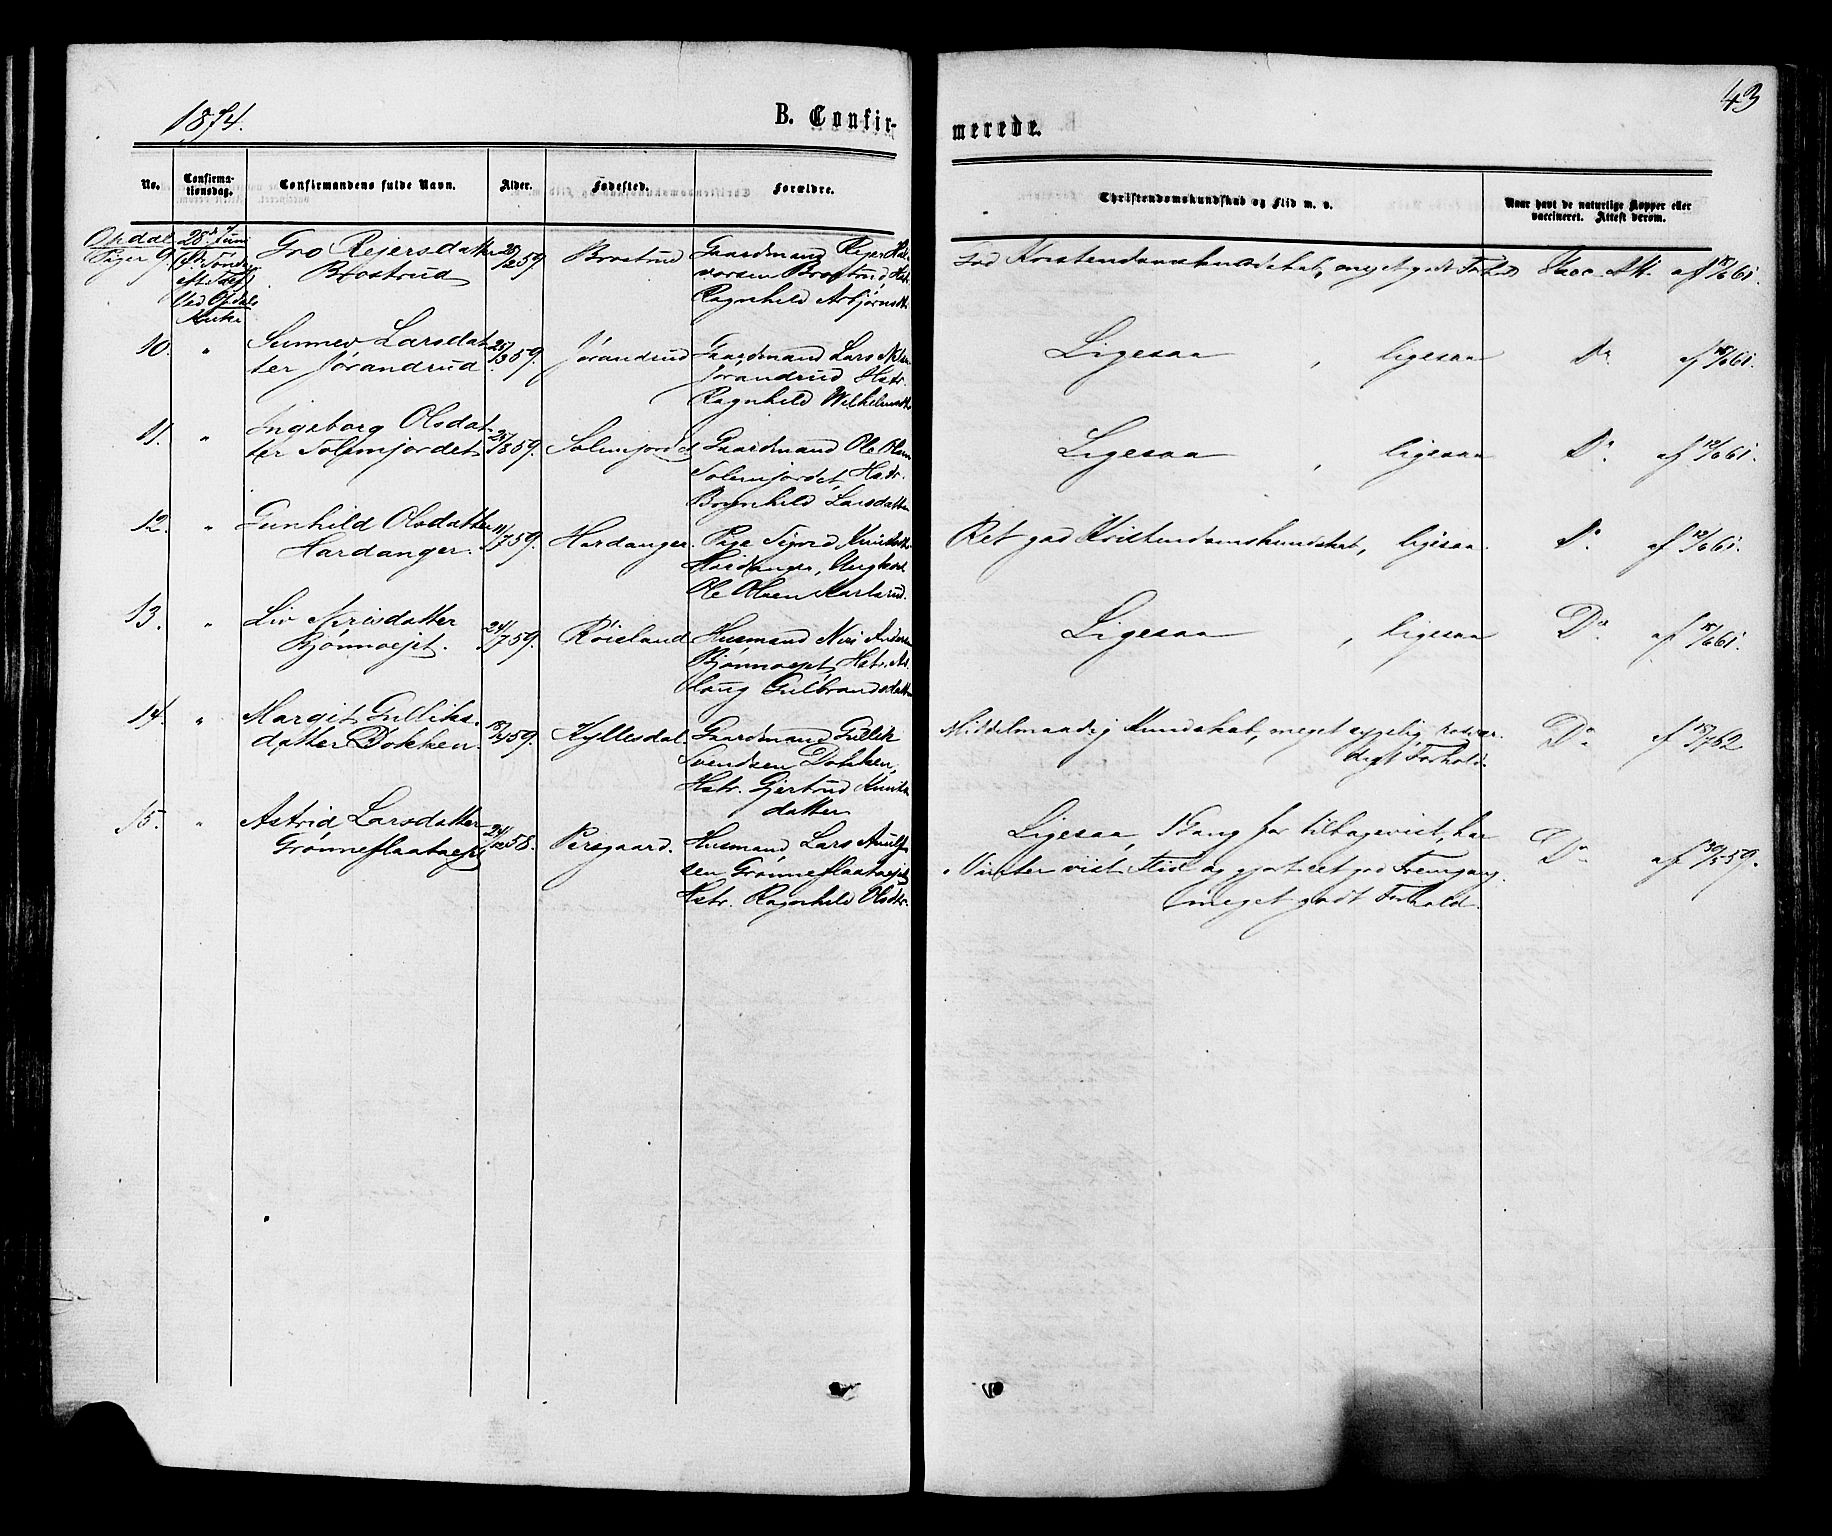 1874.
B. Confir-
merede.
43
No.
Confirma-
tionsdag.
Confirmandens fulde Navn.
Alder.
Fødested.
Forældre.
Christendomskundskab og Flid m. v.
Naar havt de naturlige Kopper eller
vaccineret. Attest derom.
Opdal
Piger 9.
28de Juni
4de Sønd.
eft. Tref.
Ved Opdals
Kirke
Gro Reiersdatter
Brostrud
28/2 59.
Brostrud
Gaardmand Reier Hal-
vorsen Brostrud, Hstr.
Ragnhild Asbjørnsdtr.
God Kristendomskundskab, meget godt Forhold
Vacc. Att. af 18/6 61.
10. "
Sunnev Larsdat-
ter Jørandrud
25/3 59.
Jørandrud
Gaardmand Lars
Jørandrud Hstr.
Ragnhild
Ligesaa, ligesaa
Do af 18/6 61.
11. "
Ingeborg Olsdat-
ter Solemjordet
59.
Solemjordet
Gaardmand Ole Olsen
Solemjordet, Hstr.
Bognhild Larsdatter
Ligesaa, ligesaa
Do af 12/6 61.
12. "
Gunhild Olsdatter
Hardanger.
11/7 59.
Hardanger.
Pige Sigrid
Hardanger, Ungkarl
Ole Olsen Karlsrud.
Ret god Kristendomskundskab, ligesaa.
Do af 12/6 61.
13. "
Liv Nirisdatter
Bjønnoejet.
24/7 59.
Røisland
Husmand Niri Andersen
Bjønnoejet, Hstr. As-
laug Gulbrandsdatter
Ligesaa, ligesaa
Do af 18/6 61.
14. "
Margit Gulliks-
datter Dokken.
59.
Kyllesdal.
Gaardmand Gullik
Svendsen Dokken,
Hstr. Gjertrud Knuts-
datter
Middelmaadig Kundskab, meget sygelig, rosvær-
digt Forhold.
Do af 18/7 62
15. "
Astrid Larsdatter
Grønneflaataejet
24/12 58.
Persgaard.
Husmand Lars
sen Grønneflaataejet
Hstr. Ragnhild Olsdtr.
Ligesaa, 1 Gang før tilbagevist, har
i Vinter vist Flid og gjort ret god Fremgang.
meget godt Forhold.
Do af 30/5 59.